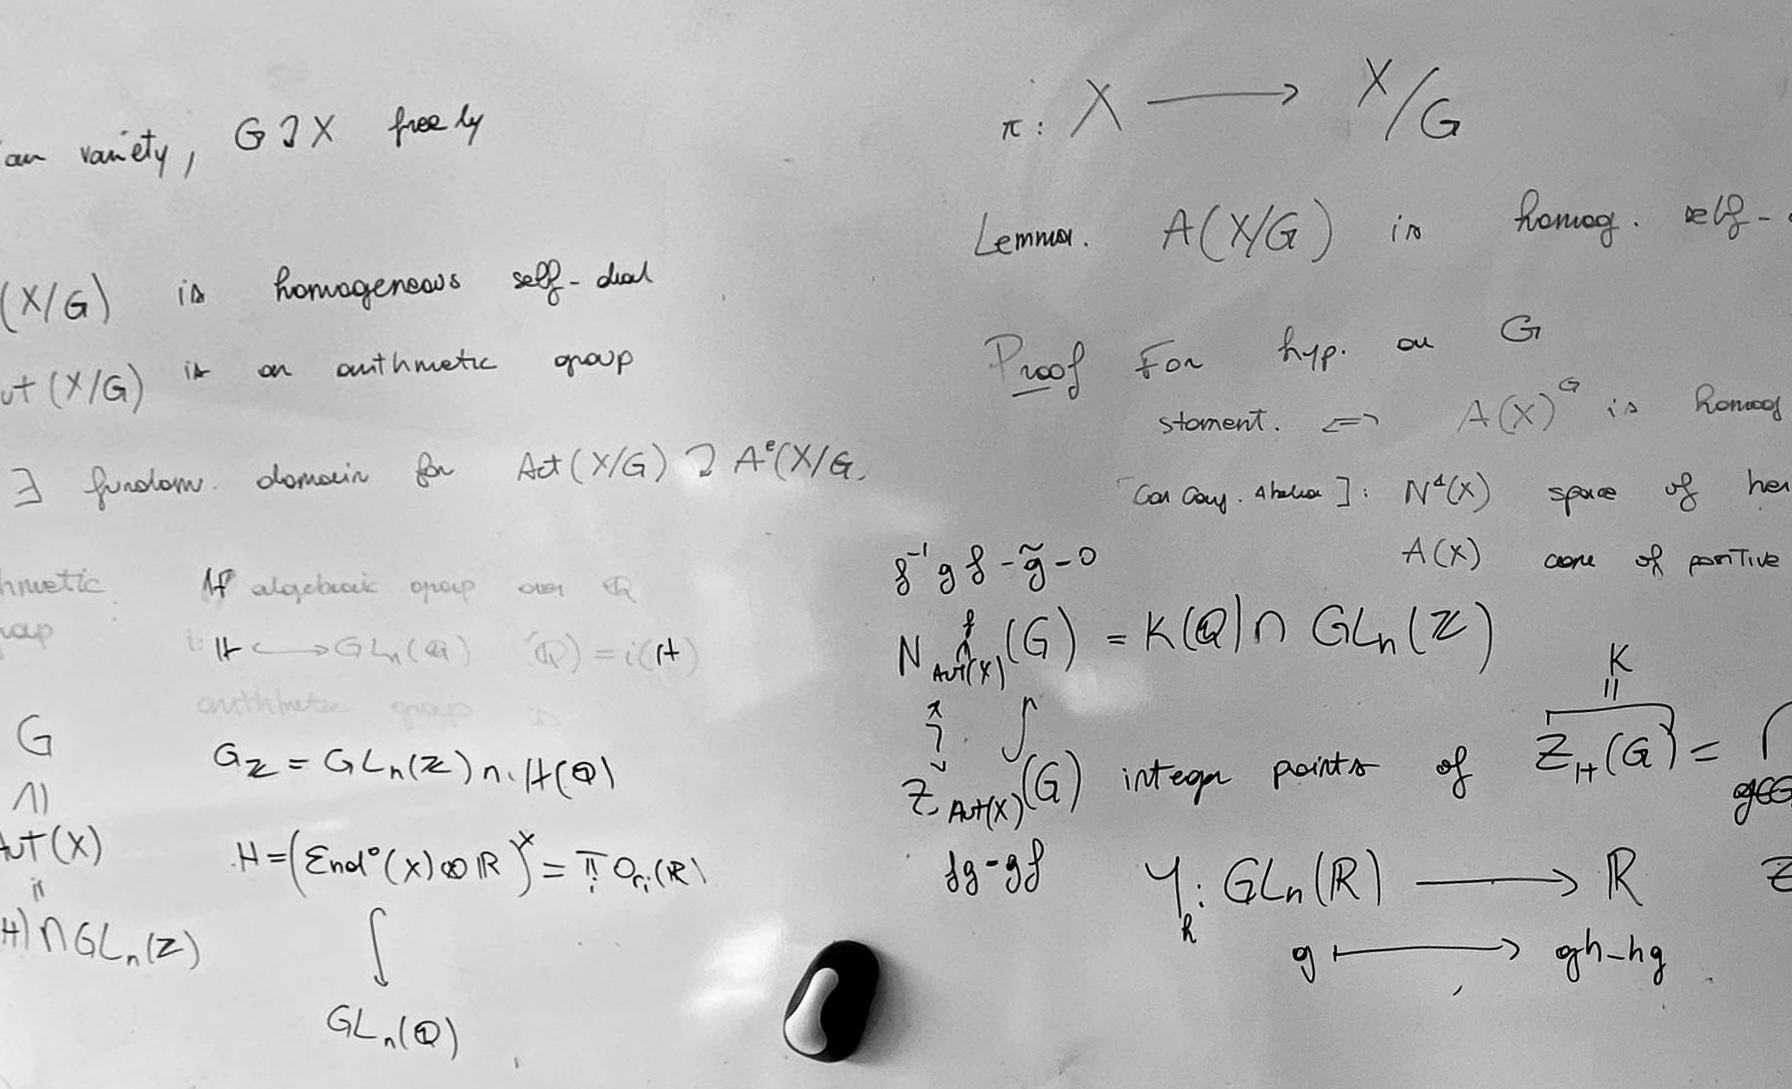 an variety, G ⊃ X freely
(X/G) is homogeneous self-dual
ut (X/G) is an arithmetic group
∃ fundam. domain for Aut (X/G) ⊃ Aᵉ(X/G,
hmetic H algebraic group over Q
roup i: H ↪ GLₙ(Q) (Q) = i(H)
arithmetic group is
G G_Z = GLₙ(Z) ∩ H(Q)
∩|
Aut(X) H = (End⁰(X) ⊗ R)ˣ = π_i O_{r_i}(R)
=
H) ∩ GLₙ(Z)
GLₙ(Q)
π: X ⟶ X/G
Lemma. A(X/G) is homog. self-
Proof For hyp. on G
stament. ⇔ A(X)ᴳ is homog
]: N¹(X) space of her
A(X) cone of positive
f⁻¹ g f - g̃ - 0
f
N_{Aut(X)}(G) = K(Q) ∩ GLₙ(Z)
K
=
Z_{Aut(X)}(G) integer points of Z_H(G) = ∩ g∈G
fg - gf
φ_h: GLₙ(R) ⟶ R
Z
g ⟼ gh-hg